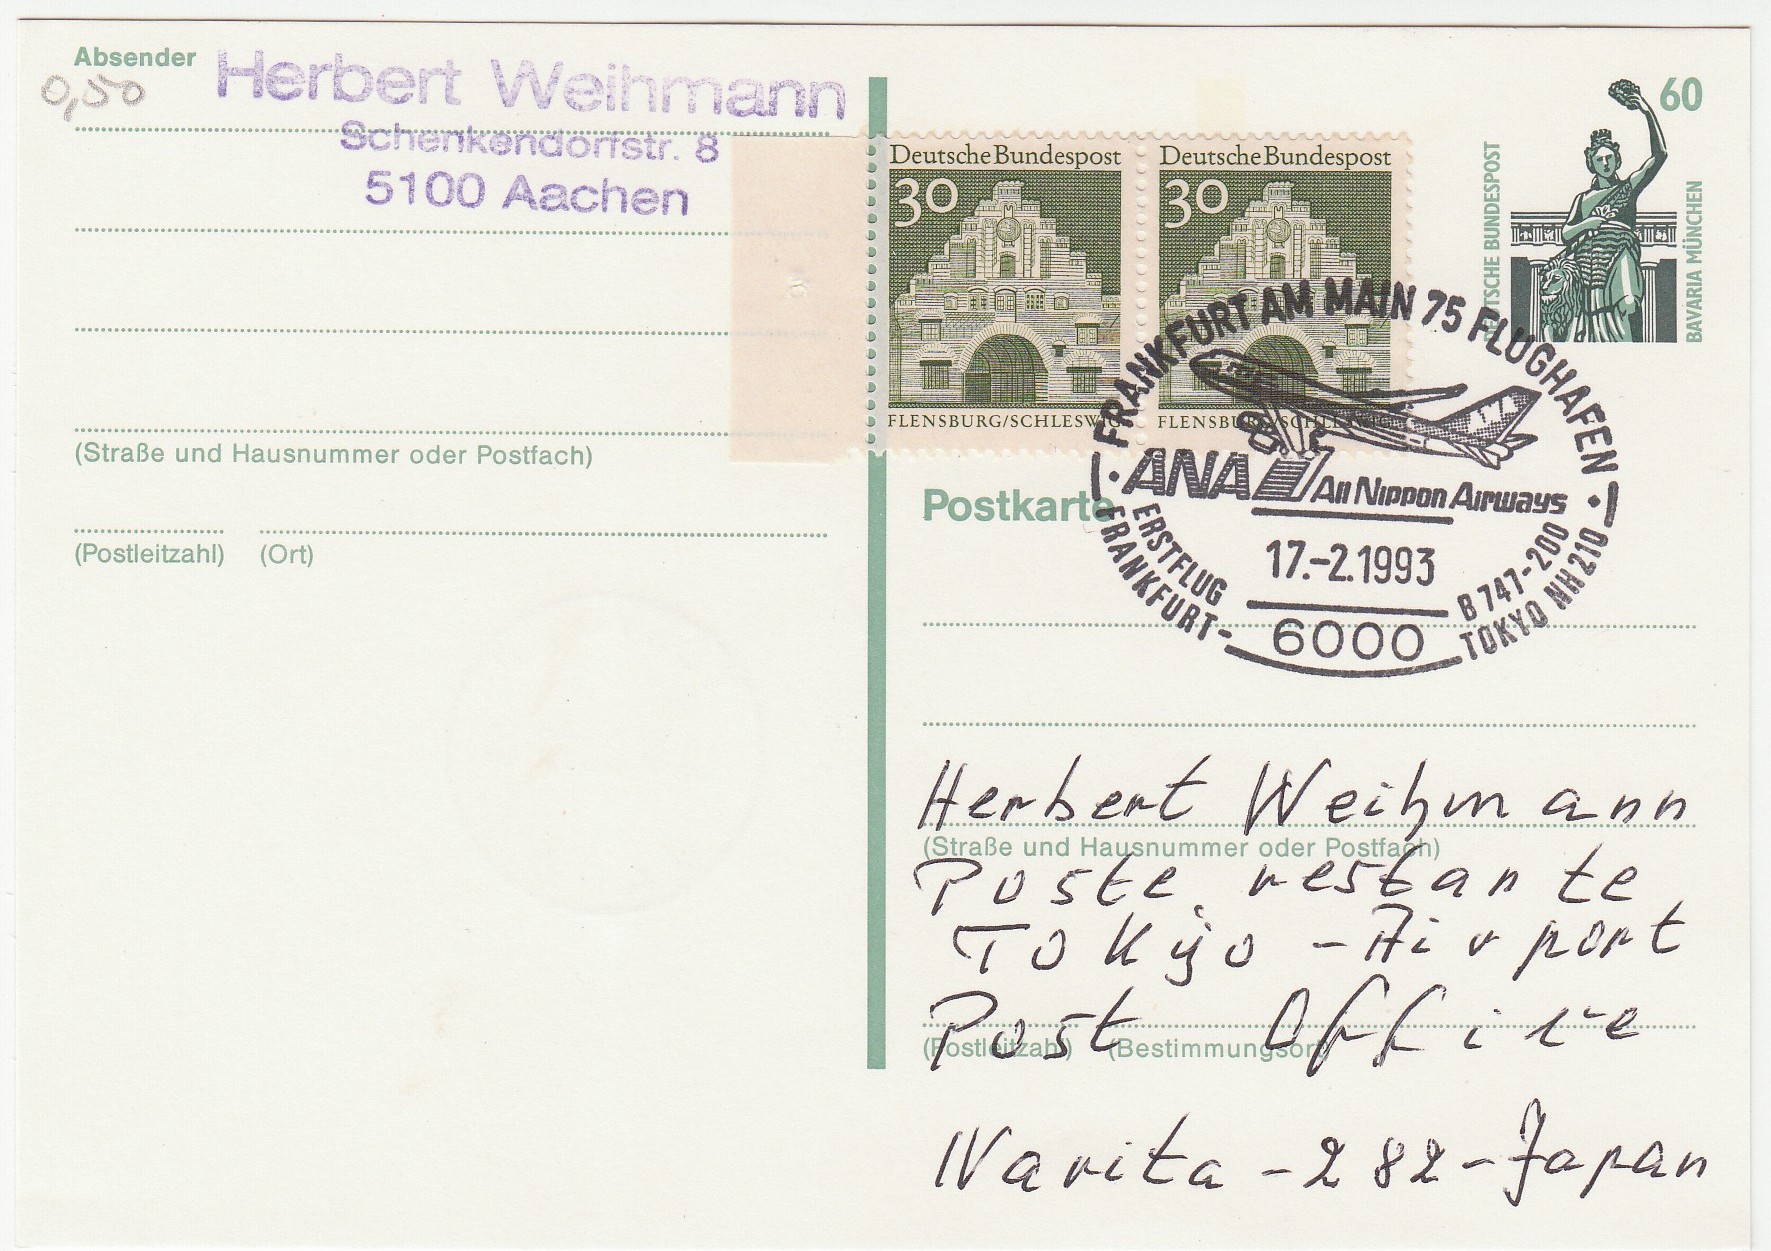 Absender
0,50
Herbert Weihmann
Schenkendorfstr. 8
5100 Aachen
(Straße und Hausnummer oder Postfach)
(Postleitzahl) (Ort)
Deutsche Bundespost
30
FLENSBURG/SCHLESWIG
Deutsche Bundespost
30
FLENSBURG/SCHLESWIG
60
DEUTSCHE BUNDESPOST
BAVARIA MÜNCHEN
FRANKFURT AM MAIN 75 FLUGHAFEN
ANA
ANA All Nippon Airways
17.-2.1993
6000
ERSTFLUG B 747-200
FRANKFURT- TOKYO NH 210
Postkarte
Herbert Weihmann
(Straße und Hausnummer oder Postfach)
Poste restante
Tokyo - Airport
Post Office
(Postleitzahl) (Bestimmungsort)
Narita - 282 - Japan